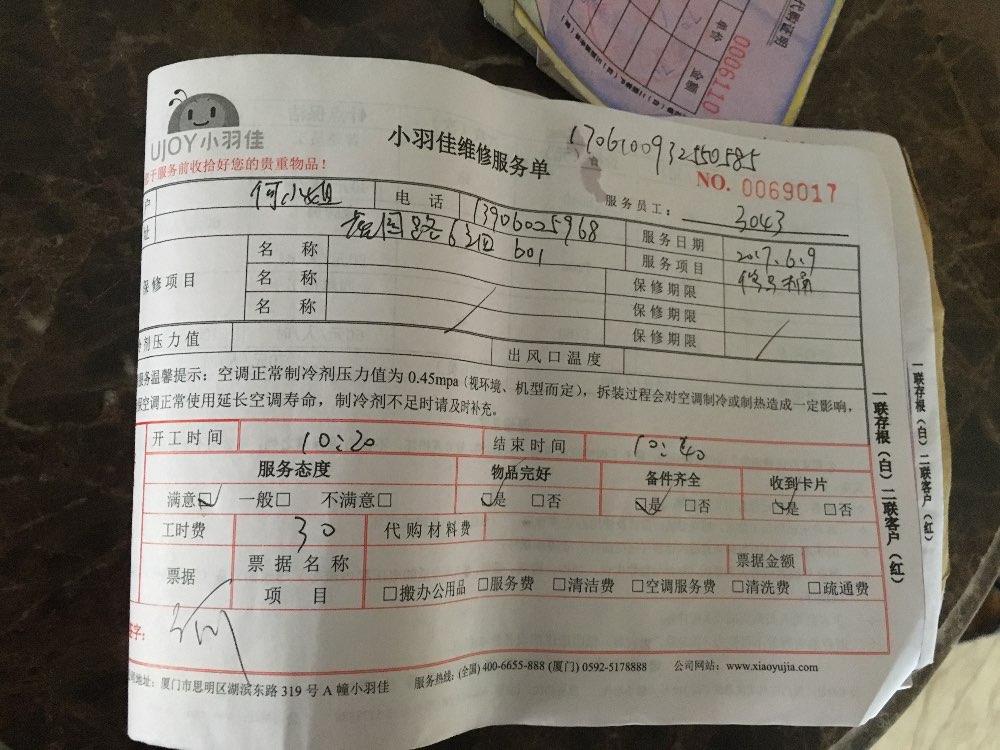 代购证明
单价
金额
0006110
UJOY小羽佳
小羽佳维修服务单
1706100932550585
于服务前收拾好您的贵重物品！
NO. 0069017
服务员工： 3043
户 何小姐 电话 13906025968 服务日期 2017.6.9
址 63 601 服务项目
保修项目 名称 保修期限
名称 保修期限
名称 保修期限
剂压力值 出风口温度
服务温馨提示：空调正常制冷剂压力值为0.45mpa（视环境、机型而定），拆装过程会对空调制冷或制热造成一定影响，
空调正常使用延长空调寿命，制冷剂不足时请及时补充。
开工时间 10:20 结束时间 10:40
服务态度 物品完好 备件齐全 收到卡片
满意☑ 一般□ 不满意□ ☑是 □否 ☑是 □否 ☑是 □否
工时费 30 代购材料费
票据 票据名称 票据金额
项目 □搬办公用品 □服务费 □清洁费 □空调服务费 □清洗费 □疏通费
签字：
地址：厦门市思明区湖滨东路319号A幢小羽佳 服务热线：(全国) 400-6655-888 (厦门) 0592-5178888 公司网站：www.xiaoyujia.com
一联存根（白）二联客户（红）
一联存根（白）二联客户（红）